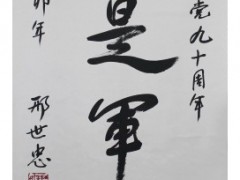 党九十周年
是軍
卯年
邢世忠